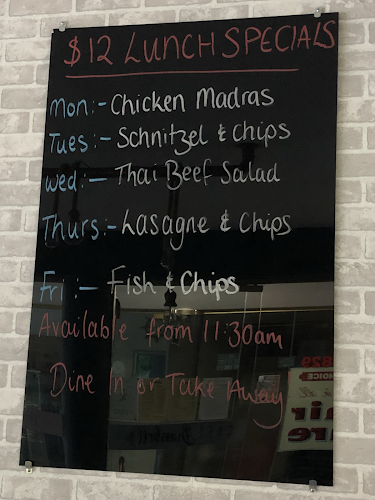 $12 LUNCH SPECIALS
Mon:- Chicken Madras
Tues:- Schnitzel & Chips
Wed:- Thai Beef Salad
Thurs:- Lasagne & Chips
Fri:- Fish & Chips
Available from 11:30am
Dine In or Take Away
CHOICE